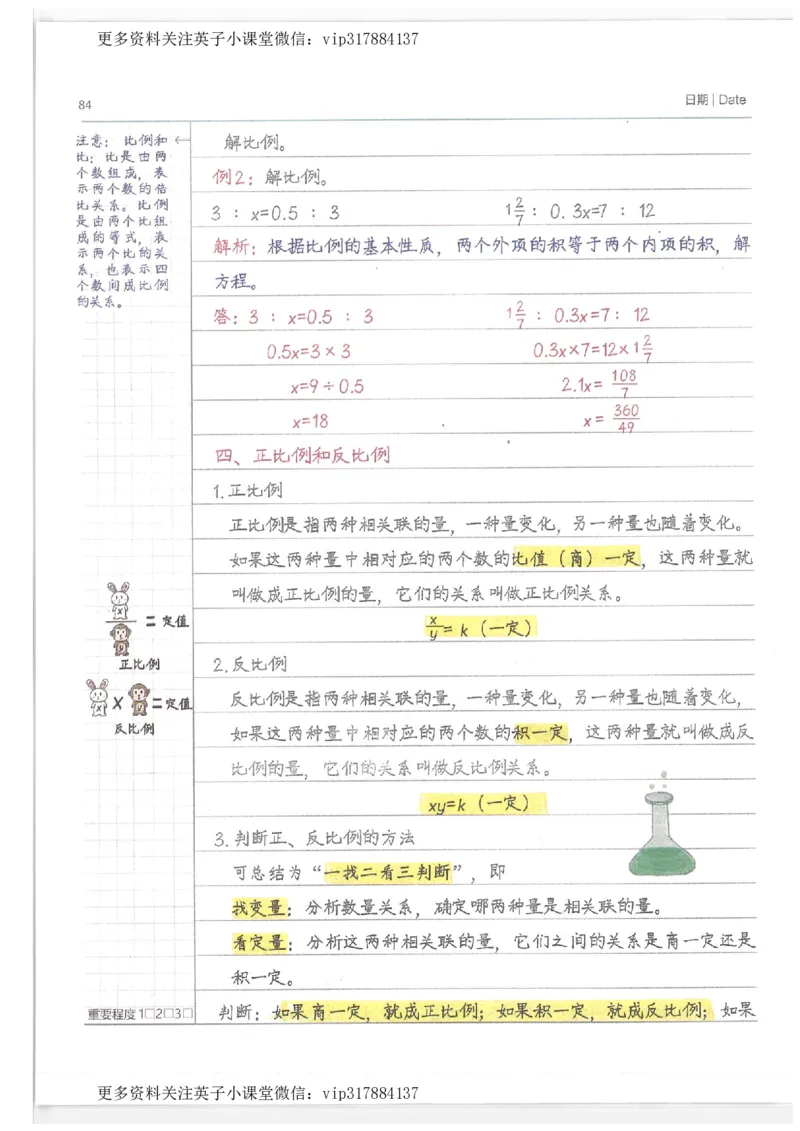 更多资料关注英子小课堂微信：vip317884137
84
日期 | Date
注意：比例和
比：比是由两
个数组成，表
示两个数的倍
比关系。比例
是由两个比组
成的等式，表
示两个比的关
系，也表示四
个数间成比例
的关系。
解比例。
例2：解比例。
3 : x=0.5 : 3　1 2/7 : 0.3x=7 : 12
解析：根据比例的基本性质，两个外项的积等于两个内项的积，解
方程。
答：3 : x=0.5 : 3　1 2/7 : 0.3x=7 : 12
0.5x=3×3　0.3x×7=12×1 2/7
x=9÷0.5　2.1x= 108/7
x=18　x= 360/49
四、正比例和反比例
1.正比例
正比例是指两种相关联的量，一种量变化，另一种量也随着变化。
如果这两种量中相对应的两个数的比值（商）一定，这两种量就
叫做成正比例的量，它们的关系叫做正比例关系。
x/y = k（一定）
x/y = 定值
正比例
2.反比例
x × y = 定值
反比例
反比例是指两种相关联的量，一种量变化，另一种量也随着变化，
如果这两种量中相对应的两个数的积一定，这两种量就叫做成反
比例的量，它们的关系叫做反比例关系。
xy=k（一定）
3.判断正、反比例的方法
可总结为“一找二看三判断”，即
找变量：分析数量关系，确定哪两种量是相关联的量。
看定量：分析这两种相关联的量，它们之间的关系是商一定还是
积一定。
判断：如果商一定，就成正比例；如果积一定，就成反比例；如果
重要程度 1□2□3□
更多资料关注英子小课堂微信：vip317884137